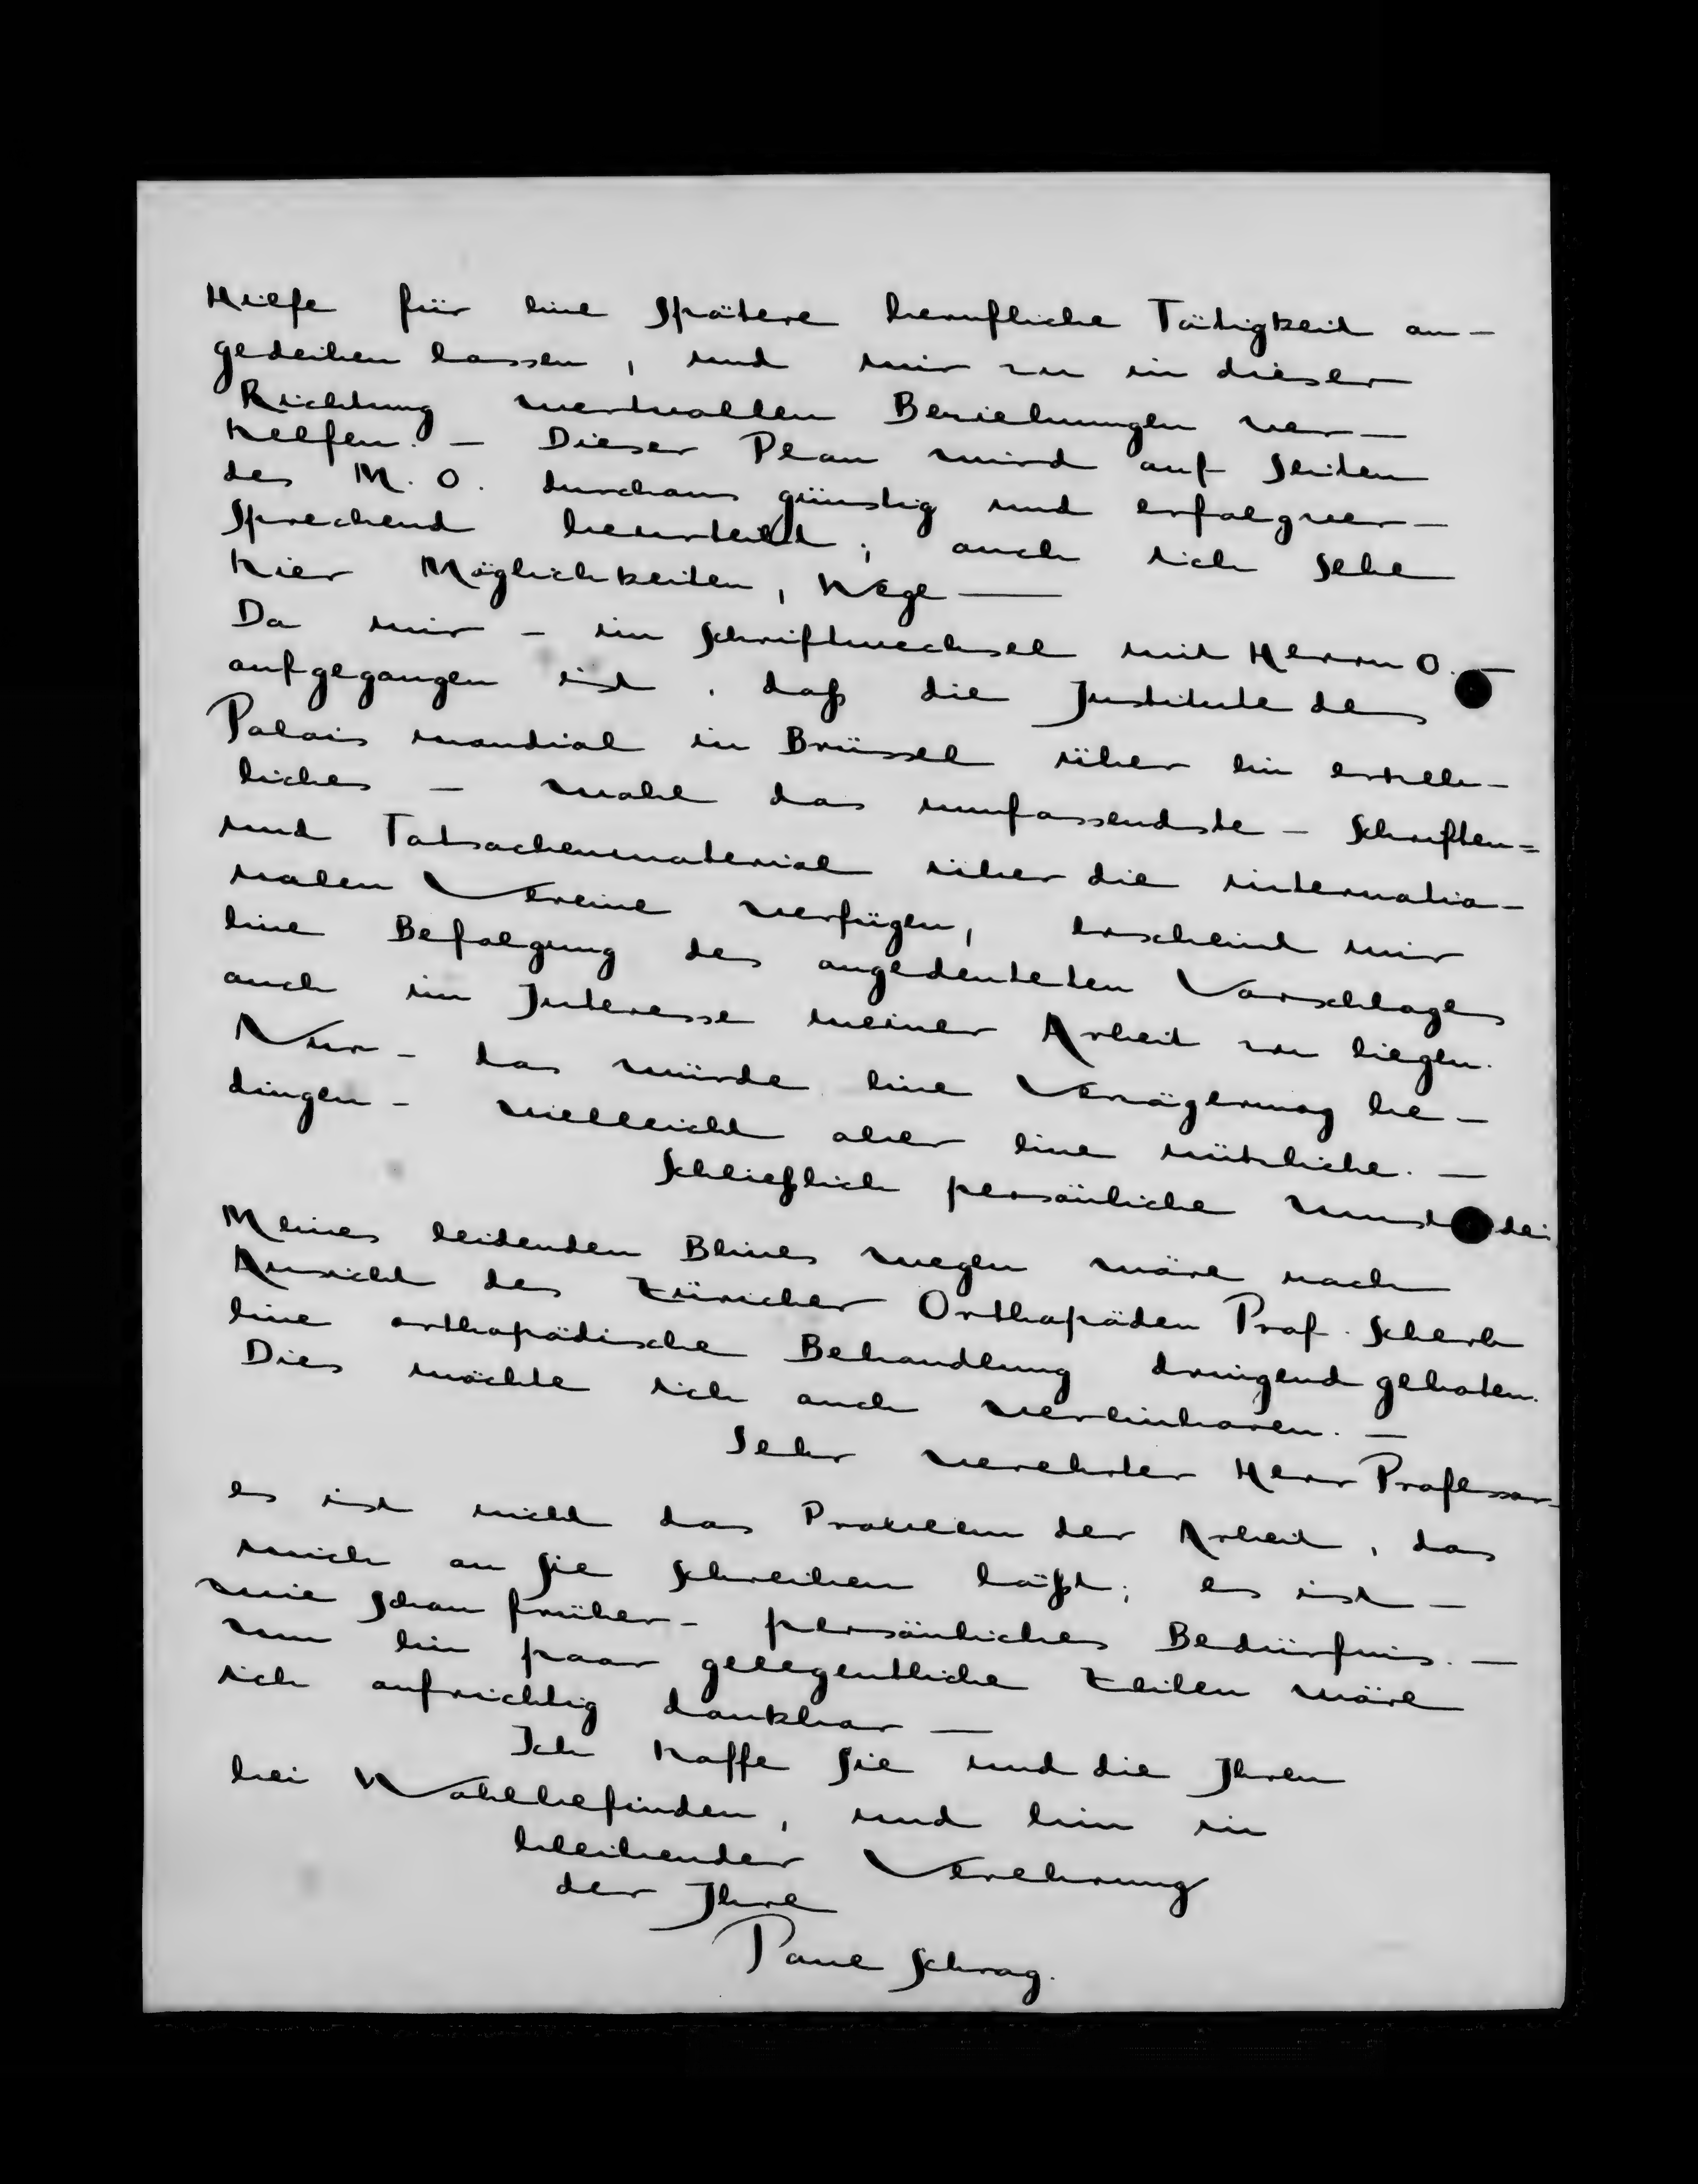 Hilfe für eine spätere berufliche Tätigkeit an-
gedeihen lassen, und mir zu in dieser
Richtung wertvollen Beziehungen ver-
helfen. - Dieser Plan wird auf Seiten
des M. O. durchaus günstig und erfolgver-
sprechend beurteilt; auch ich sehe
hier Möglichkeiten, Wege —
Da mir - im Schriftwechsel mit Herrn O. -
aufgegangen ist, daß die Institute des
Palais mondial in Brüssel über ein erheb-
liches - wohl das umfassendste - Schriften=
und Tatsachenmaterial über die internatio-
nalen Vereine verfügen, erscheint mir
eine Befolgung des angedeuteten Vorschlages
auch im Interesse meiner Arbeit zu liegen.
Nur - das würde eine Verzögerung be-
dingen - vielleicht aber eine nützliche. -
Schließlich persönliche
Meines leidenden Beines wegen wäre nach
Ansicht des Züricher Orthopäden Prof. Scherb
eine orthopädische Behandlung dringend geboten.
Dies möchte ich auch vereinbaren. -
Sehr verehrter Herr Professor-
es ist nicht das Problem der Arbeit, das
mich an Sie schreiben läßt; es ist -
wie schon früher - persönliches Bedürfnis. -
Um ein paar gelegentliche Zeilen wäre
ich aufrichtig dankbar —
Ich hoffe Sie und die Ihren
bei Wohlbefinden, und bin in
bleibender Verehrung
der Ihre
Paul Schrag.